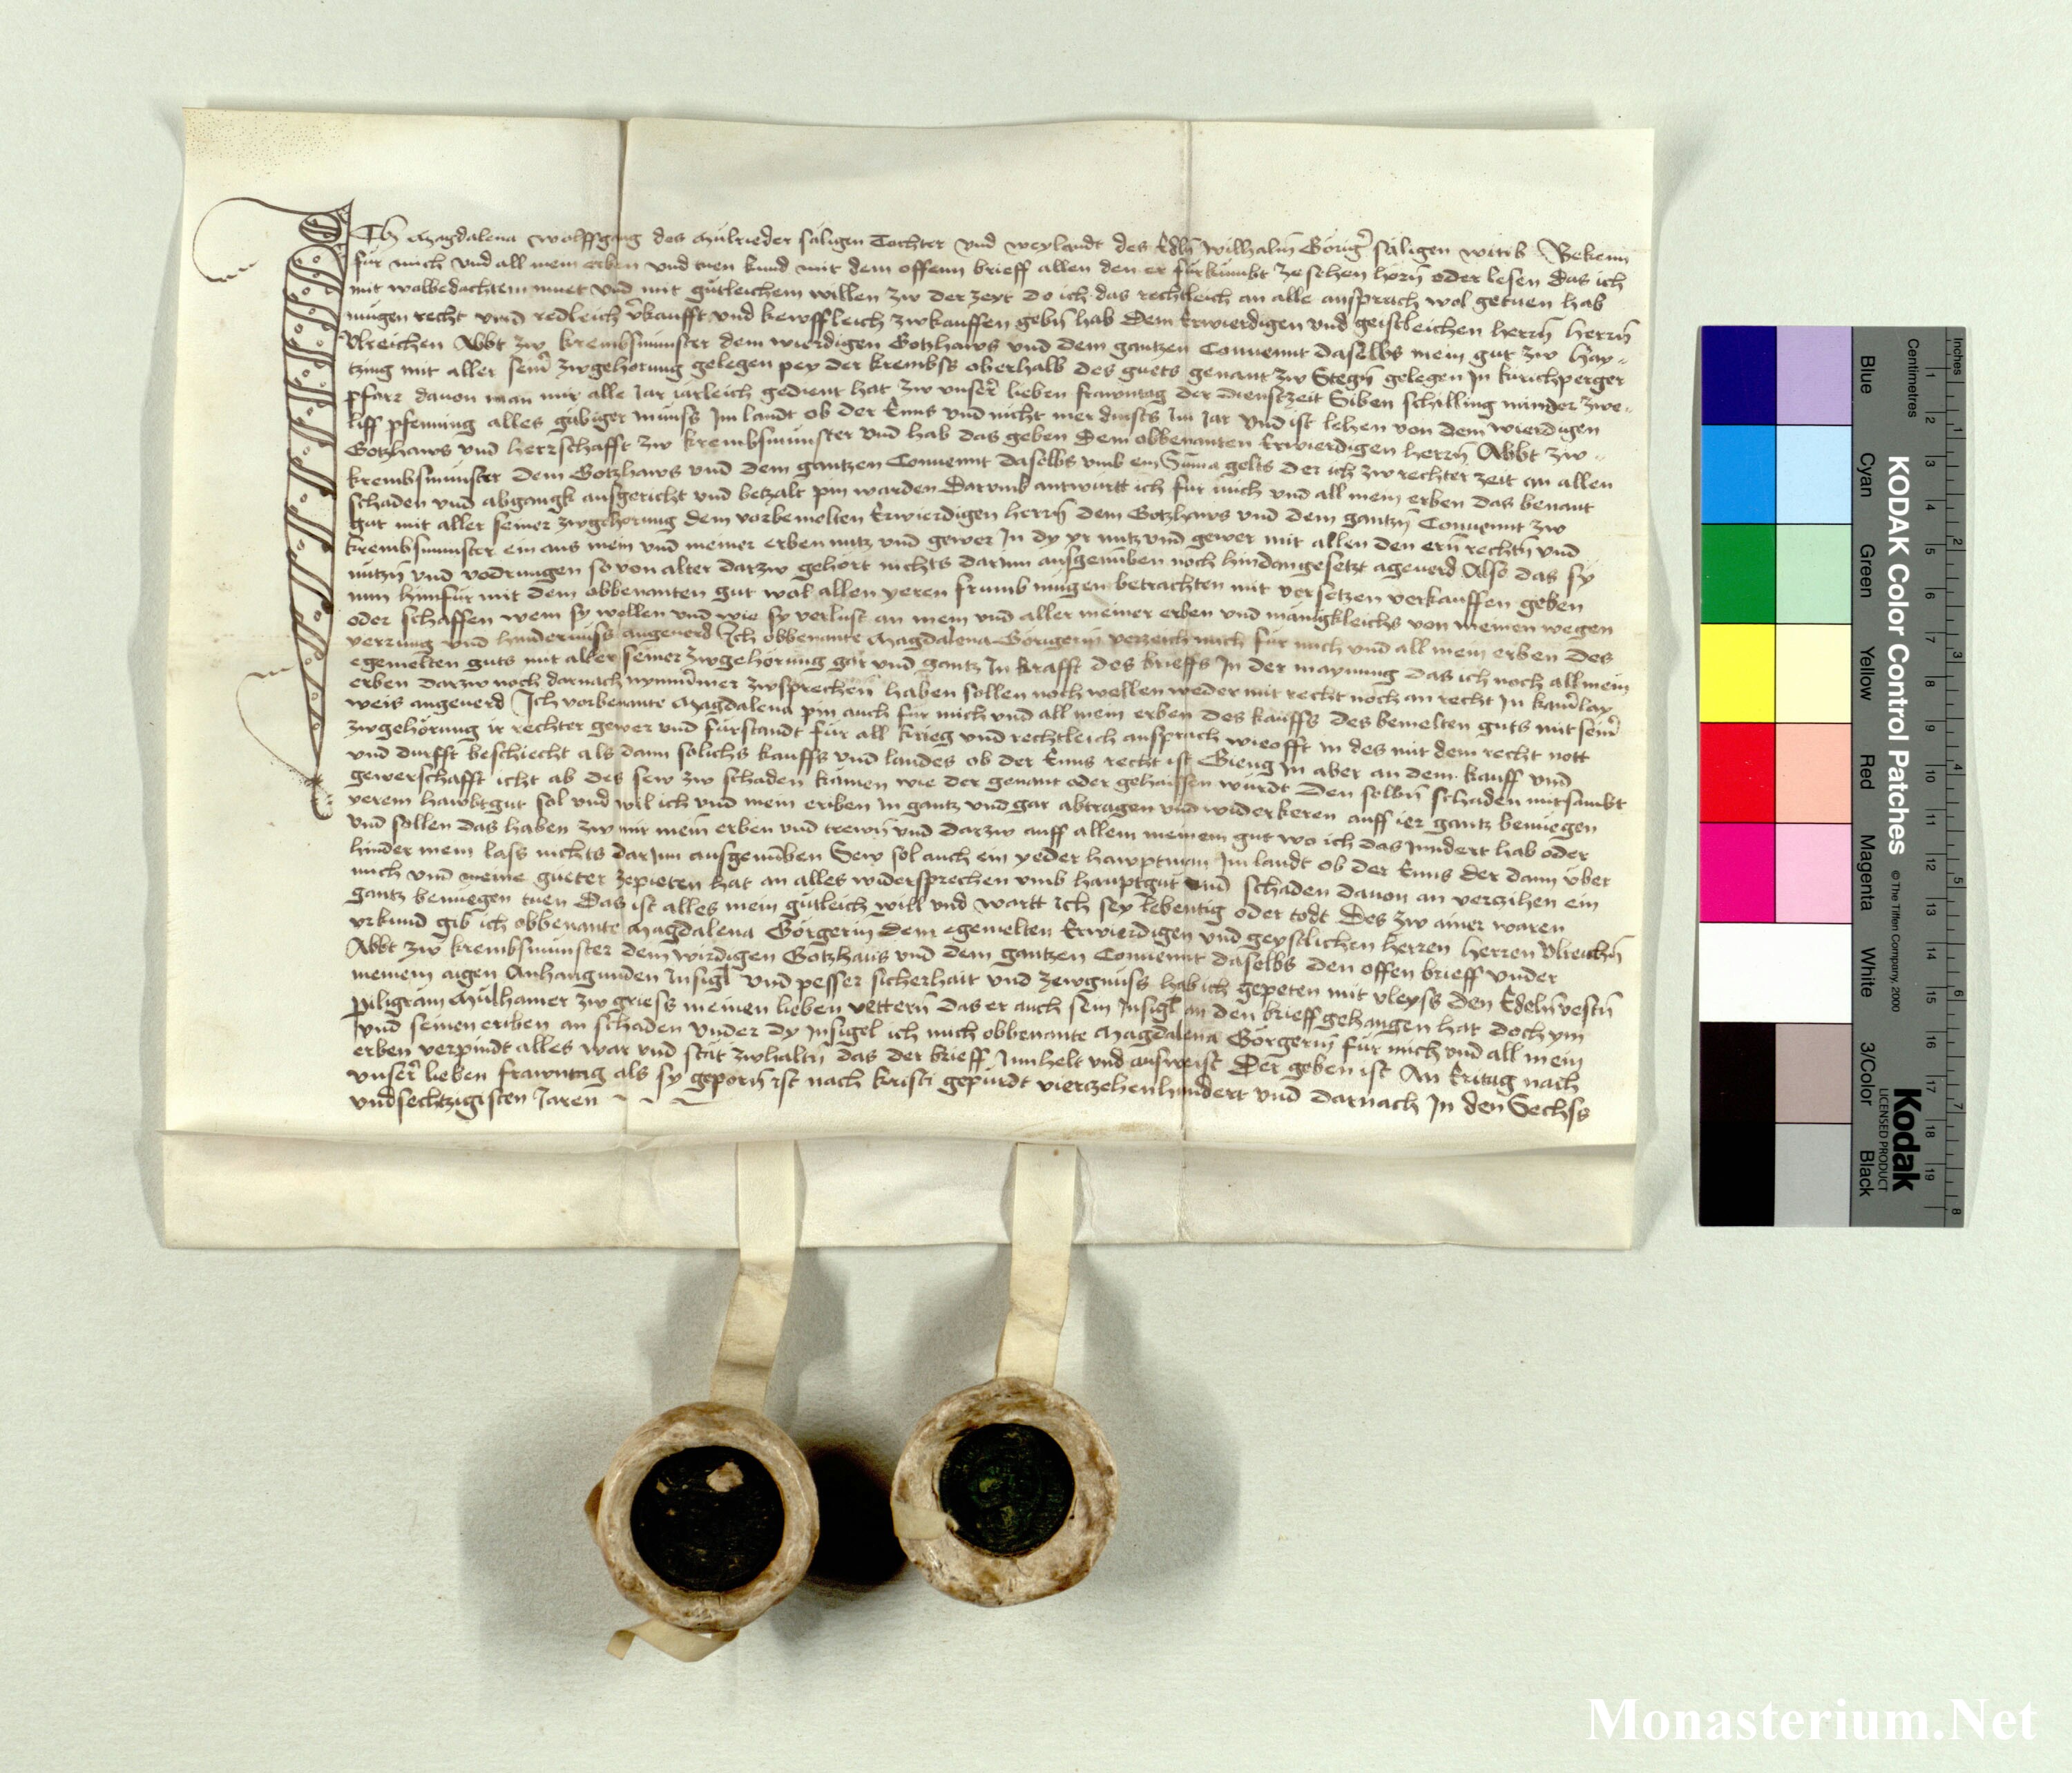 ICh Magdalena Wolffgang des Mulrieder saligen Tochter vnd weylandt des Edln Wilhalm Görig̃ saligen witib Bekenn
fur mich vnd all mein erben vnd tuen kund mit dem offenn brieff allen den er furkumbt zesehen hörn̄ oder lesen das ich
mit wolbedachtem muet vnd mit gütleichem willen zw der zeyt do ich das rechtleich an alle ansprach wol getuen hab
mügen recht vnd redleich v̉kaufft vnd kewffleich zwkauffen gebn̄ hab Dem Erwierdigen vnd geistleichen herrn̄ herrn̄
Vlreichen Abbt zw Krembsmünster dem wierdigen Gotzhaws vnd dem gantzen Conuennt daselbs mein gut zw Hay-
tzing mit aller sein̉ zwgehorung gelegen pey der Krembss oberhalb des guets genant zw Stegn̄ gelegen In kirichperger
pfarr dauon man mir alle Jar iarleich gedient hat zw vnser̉ lieben frawntag der dienstzeit Siben schilling minder zwe-
liff pfenning alles gäbiger münss Im landt ob der Enns vnd nicht mer dinsts Im Jar vnd ist lehen von dem wierdigen
Gotzhaws vnd herrschafft zw Krembsmünster vnd hab das geben Dem obbenanten Erwierdigen herrn̄ Abbt zw
Krembsmünster dem Gotzhaws vnd dem gantzen Conuennt daselbs vmb ein Sūma gelts der ich zw rechter zeit an allen
schaden vnd abgangk ausgericht vnd betzalt pin warden Darumb antwurtt ich fur mich vnd all mein erben das benant
gut mit aller seiner zwgehorung dem vorbemelten Erwierdigen herrn̄ dem Gotzhaws vnd dem gantzn̄ Conuennt zw
Krembsmünster ein aus mein vnd meiner erben nutz vnd gewer In dy yr nutz vnd gewer mit allen den ern̄ rechtn̄ vnd
nutzn̄ vnd vodrungen so von alter darzw gehört nichts darInn ausgenūben noch hindangesetzt ageuerd Also das sy
nun hinfür mit dem obbenanten gut wol allen yeren frumb mügen betrachten mit versetzen verkauffen geben
oder schaffen wem sy wellen vnd wie sy verlust an mein vnd aller meiner erben vnd mänigkleichs von meinen wegen
yerrung vnd hindernüss angeuerd Ich obbenante Magdalena Görigerin verzeich mich für mich vnd all mein erben des
egemelten guts mit aller seiner zwgehörung gar vnd gantz In krafft des brieffs In der maynung das ich noch all mein
erben darzw noch darnach nymm̄mer zwsprechen haben sollen noch wellen weder mit recht noch an recht In kain̉lay
weis angeuerd Ich vorbenante Magdalena pin auch für mich vnd all mein erben des kauffs des bemelten guts mit sein̉
zwgehörung ir rechter gewer vnd fürstandt für all krieg vnd rechtleich ansprach wieofft In des mit dem recht nott
vnd durfft beschiecht als dann solichs kauffs vnd landes ob der Enns recht ist Gieng In aber an dem kauff vnd
gewerschafft icht ab des sew zw schaden kämen wie der genant oder gehaissen würdt Den selbn̄ schaden mitsambt
yerem hawbtgut sol vnd wil ich vnd mein eriben In gantz vnd gar abtragen vnd widerkeren auff ier gantz benuegen
vnd sollen das haben zw mir mein erben vnd trewn̄ vnd darzw auff allem meinem gut wo ich das Inndert hab oder
hinder mein lass nichts darInn ausgenūben Sew sol auch ein yeder hawptman Im landt ob der Enns der dann über
mich vnd meine gueter zepieten hat an alles widersprechen vmb hauptgut vnd schaden dauon an verzihen ein
gantz benüegen tuen Das ist alles mein gütleich will vnd wartt Ich sey lebentig oder todt Des zw ainer waren
vrkund gib ich obbenante Magdalena Görgerin dem egemelten Erwierdigen vnd geystlichen herren herren Vlreichn̄
Abbt zw Krembsmünster dem wirdigen Gotzhaus vnd dem gantzen Conuennt daselbs den offen brieff vnder
meinem aigen Anhangunden Insigl vnd pesser sicherhait vnd zewgnüss hab ich gepeten mit vleyss den Edeln̄ vestn̄
Piligram Mülhamer zw griess meinen lieben vettern̄ das er auch sein Insigl an den brieff gehangen hat doch ym
vnd seinen eriben an schaden vnder dy Insigel ich mich obbenante Magdalena Görgerin̄ für mich vnd all mein
erben verpindt alles war vnd stät zwhaltn̄ das der brieff Innhelt vnd ausweist Der geben ist An Eritag nach
vnser̉ lieben frawntag als sy geporn̄ ist nach kristi gepürdt vierzehenhundert vnd Darnach In den Sechss
vndsechtzigisten Jaren
KODAK Color Control Patches © The Tiffen Company, 2000
Kodak
LICENSED PRODUCT
Blue Cyan Green Yellow Red Magenta White 3/Color Black
Centimetres 1 2 3 4 5 6 7 8 9 10 11 12 13 14 15 16 17 18 19
Inches 1 2 3 4 5 6 7 8
Monasterium.Net